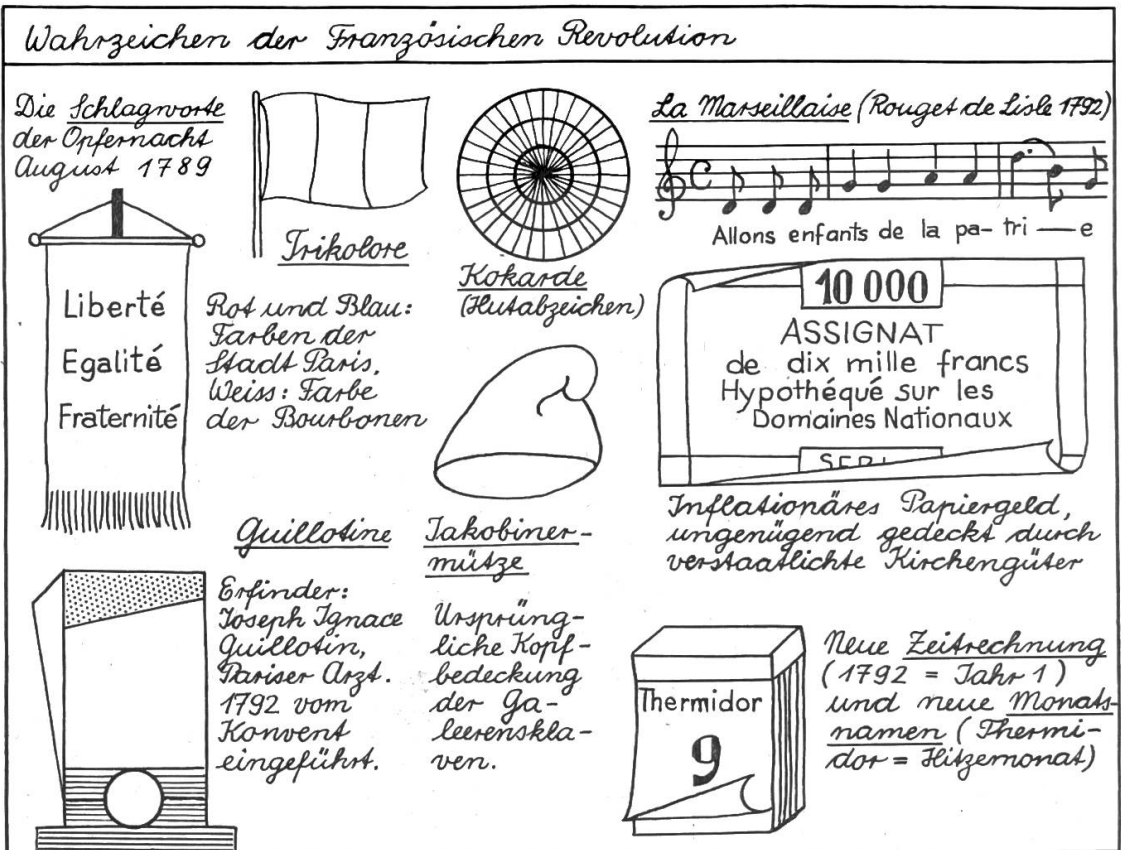 Wahrzeichen der Französischen Revolution
Die Schlagworte
der Opfernacht
August 1789
Liberté
Egalité
Fraternité
Trikolore
Rot und Blau:
Farben der
Stadt Paris.
Weiss: Farbe
der Bourbonen
Kokarde
(Hutabzeichen)
La Marseillaise (Rouget de Lisle 1792)
Allons enfants de la pa- tri — e
10 000
ASSIGNAT
de dix mille francs
Hypothéqué sur les
Domaines Nationaux
Inflationäres Papiergeld,
ungenügend gedeckt durch
verstaatlichte Kirchengüter
Guillotine
Erfinder:
Joseph Ignace
Guillotin,
Pariser Arzt.
1792 vom
Konvent
eingeführt.
Jakobiner-
mütze
Ursprüng-
liche Kopf-
bedeckung
der Ga-
leerenskla-
ven.
Thermidor
9
Neue Zeitrechnung
(1792 = Jahr 1)
und neue Monats-
namen (Thermi-
dor = Hitzemonat)